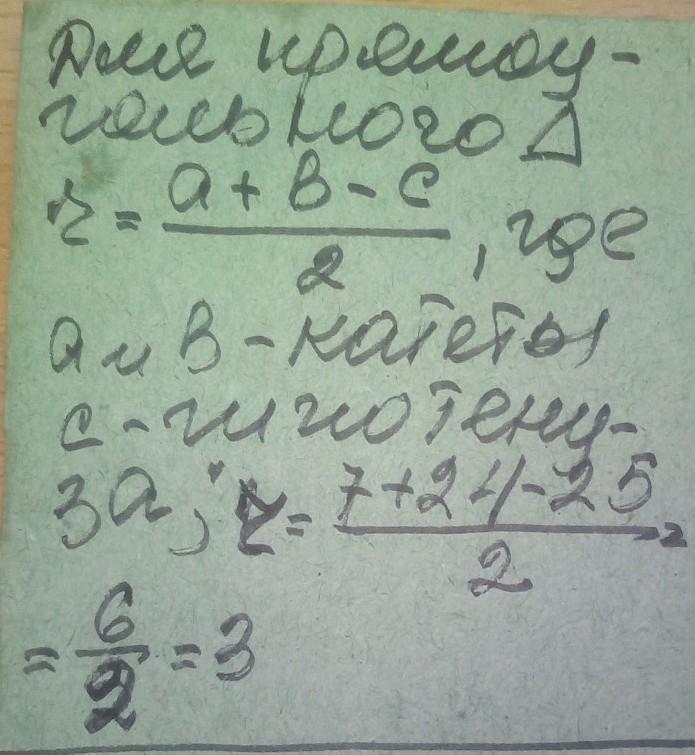 Для прямоу-
гольного Δ
r = (a + b - c) / 2, где
a и b - катеты
c - гипотену-
за; r = (7 + 24 - 25) / 2 =
= 6/2 = 3